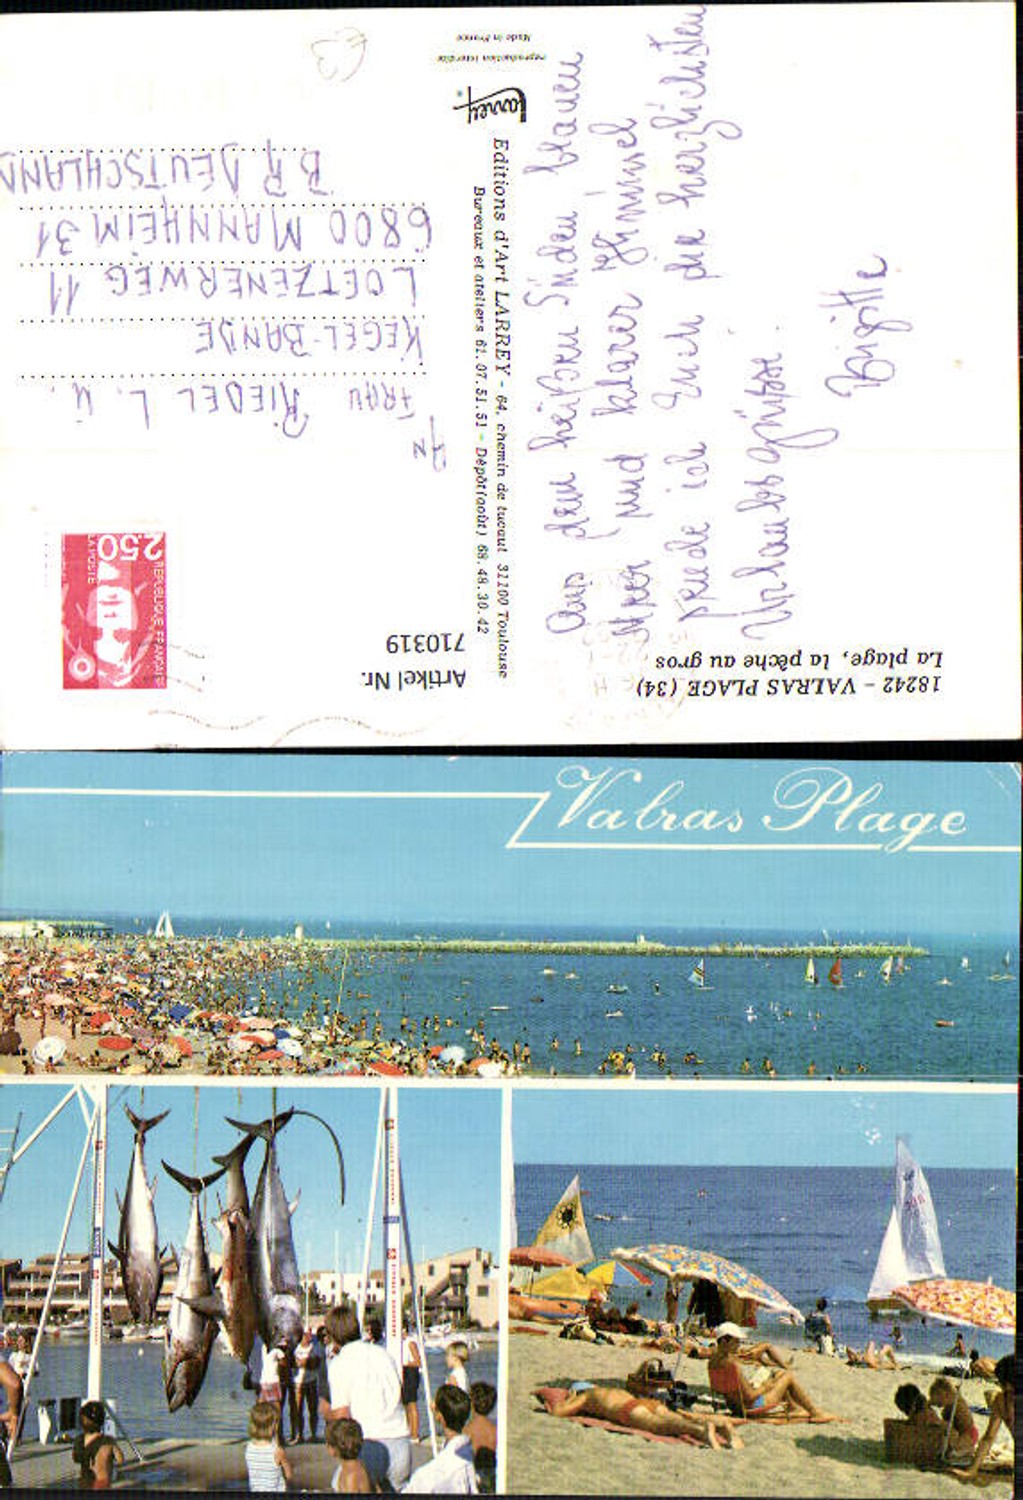 18242 - VALRAS PLAGE (34)
La plage, la pêche au gros
Aus dem heißen Süden blauen
Meer und klarer Himmel
sende ich Euch die herzlichsten
Urlaubsgrüße.
Brigitte
Editions d'Art LARREY - 64, chemin de tucaut 31100 Toulouse
Bureaux et ateliers 61.07.51.51 - Dépôt(août) 68.48.30.42
Larrey
reproduction interdite
Made in France
Artikel Nr.
710319
REPUBLIQUE FRANÇAISE
2,50
LA POSTE
AN
FRAU RIEDEL L. U.
KEGEL-BANDE
LOETZENERWEG 11
6800 MANNHEIM 31
BR DEUTSCHLAND
€3
Valras Plage